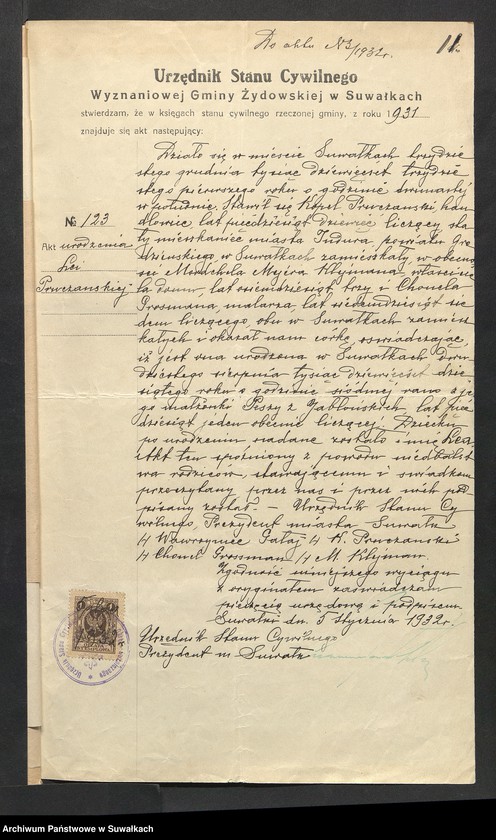 Do aktu № 3/1932r.
11
Urzędnik Stanu Cywilnego
Wyznaniowej Gminy Żydowskiej w Suwałkach
stwierdzam, że w księgach stanu cywilnego rzeczonej gminy, z roku 1931
znajduje się akt następujący:
№ 123
Akt urodzenia
Lei
Pruczanskiej
Działo się w mieście Suwałkach trzydzie
stego grudnia tysiąc dziewięćset trzydzie
stego pierwszego roku o godzinie dwunastej
w południe. Stawił się Kopel Pruczanski han
dlowiec, lat pięćdziesiąt dziewięć liczący, sta
ły mieszkaniec miasta Indura, powiatu Gro
dzieńskiego, w Suwałkach zamieszkały, w obecno
ści Mordchela Mejera Klejmana, właścicie
la domu, lat osiemdziesiąt trzy i Chonela
Grosmana, malarza, lat siedemdziesiąt sie
dem liczącego, obu w Suwałkach zamiesz
kałych i okazał nam córkę, oświadczając,
iż jest ona urodzona w Suwałkach dwu
dziestego sierpnia tysiąc dziewięćset dzie
siątego roku o godzinie siódmej rano z je
go małżonki Peszy z Jabłońskich, lat pięć
dziesiąt jeden obecnie liczącej. Dziecku
po urodzeniu nadane zostało imię Lea
Akt ten spóźniony z powodu niedbalst
wa rodziców, stawającemu i świadkom
przeczytany, przez nas i przez nich pod
pisany został. — Urzędnik Stanu Cy
wilnego, Prezydent miasta Suwałk
/-/ Wawrzyniec Gałaj /-/ K. Pruczanski
/-/ Chonel Grossman /-/ M. Klejman.
Zgodność niniejszego wyciągu
z oryginałem zaświadczam
pieczęcią urzędową i podpisem
Suwałki dn. 5 stycznia 1932r.
Urzędnik Stanu Cywilnego
Prezydent m. Suwałk
Archiwum Państwowe w Suwałkach